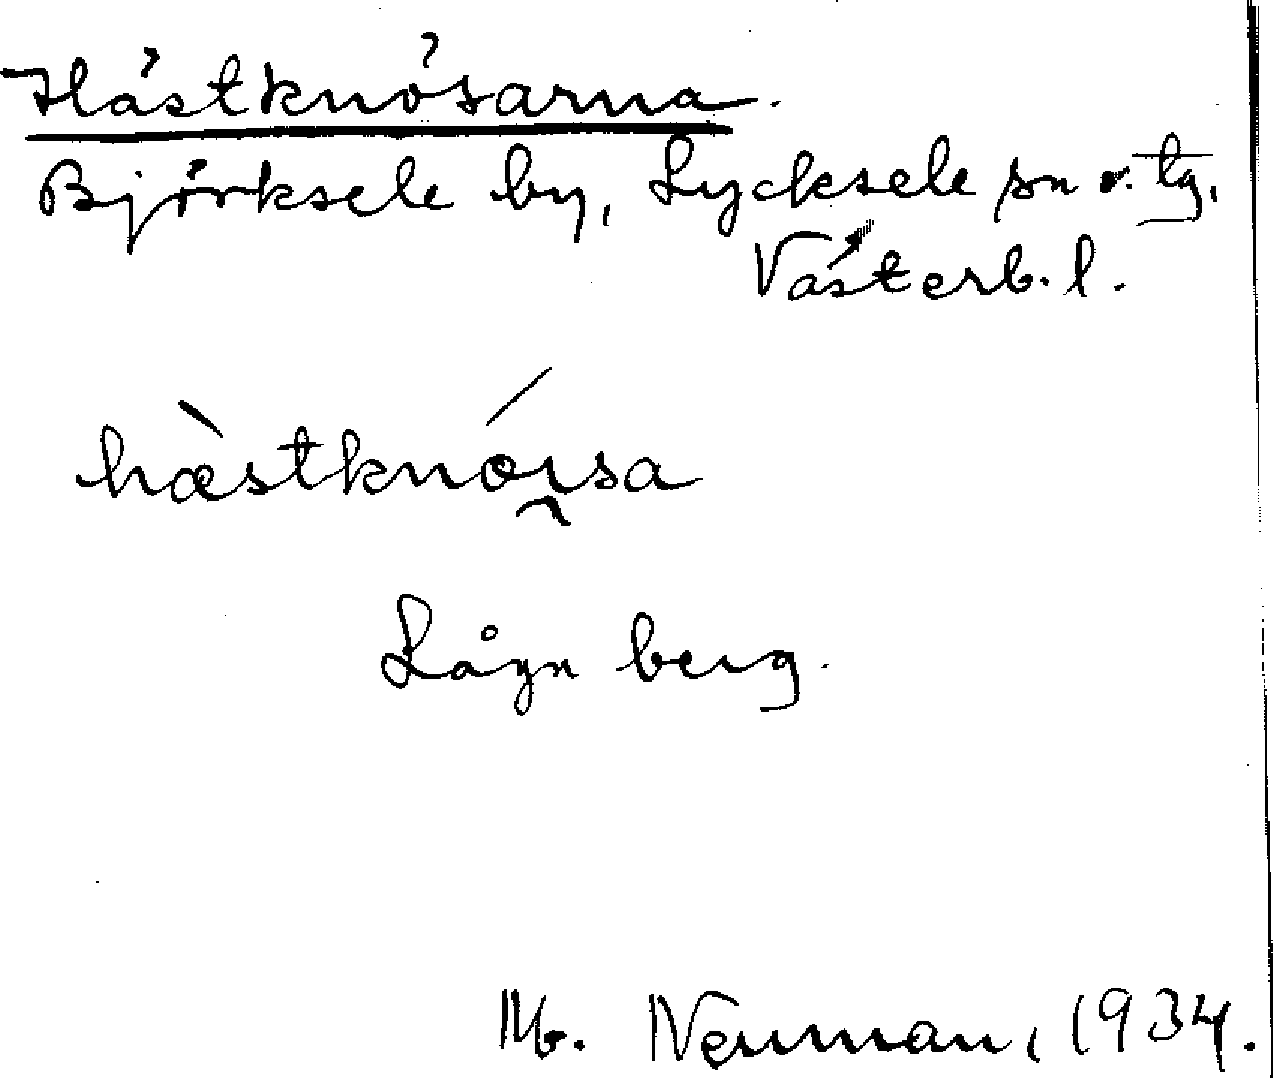 Hästknösarna.
Björksele by, Lycksele sn o. tg,
Västerb. l.
hæ̀stknóısa
Lågn berg.
M. Neuman, 1934.